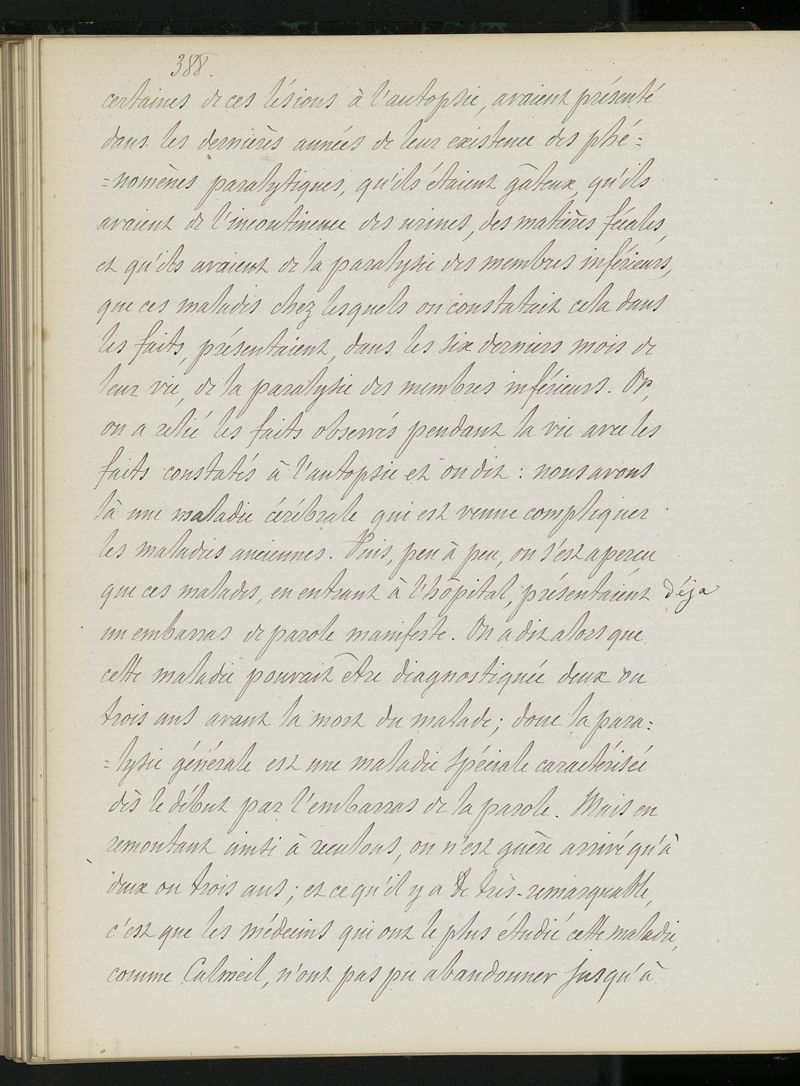 388.
certaines de ces lésions à l'autopsie, avaient présenté
dans les dernières années de leur existence des phé=
=nomènes paralytiques, qu'ils étaient gâteux, qu'ils
avaient de l'incontinence des urines, des matières fécales,
et qu'ils avaient de la paralysie des membres inférieurs,
que ces malades chez lesquels on constatait cela dans
les faits, présentaient, dans les six derniers mois de
leur vie, de la paralysie des membres inférieurs. Or,
on a relié les faits observés pendant la vie avec les
faits constatés à l'autopsie et on dit : nous avons
là une maladie cérébrale qui est venue compliquer
les maladies anciennes. Puis, peu à peu, on s'est aperçu
que ces malades, en entrant à l'hôpital, présentaient déja
un embarras de parole manifeste. On a dit alors que
cette maladie pouvait être diagnostiquée deux ou
trois ans avant la mort du malade; donc la para=
=lysie générale est une maladie spéciale caractérisée
dès le début par l'embarras de la parole. Mais en
remontant ainsi à reculons, on n'est guère arrivé qu'à
deux ou trois ans; et ce qu'il y a de très-remarquable,
c'est que les médecins qui ont le plus étudié cette maladie,
comme Calmeil, n'ont pas pu abandonner jusqu'à